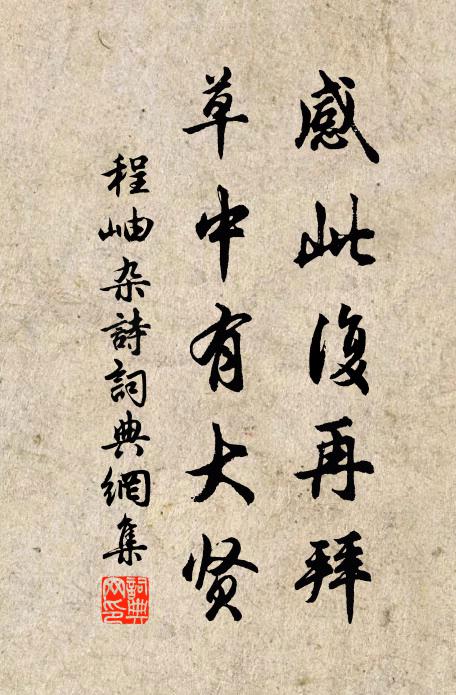 感此復再拜
草中有大贤
程岫杂詩詞典網集
詞典網印